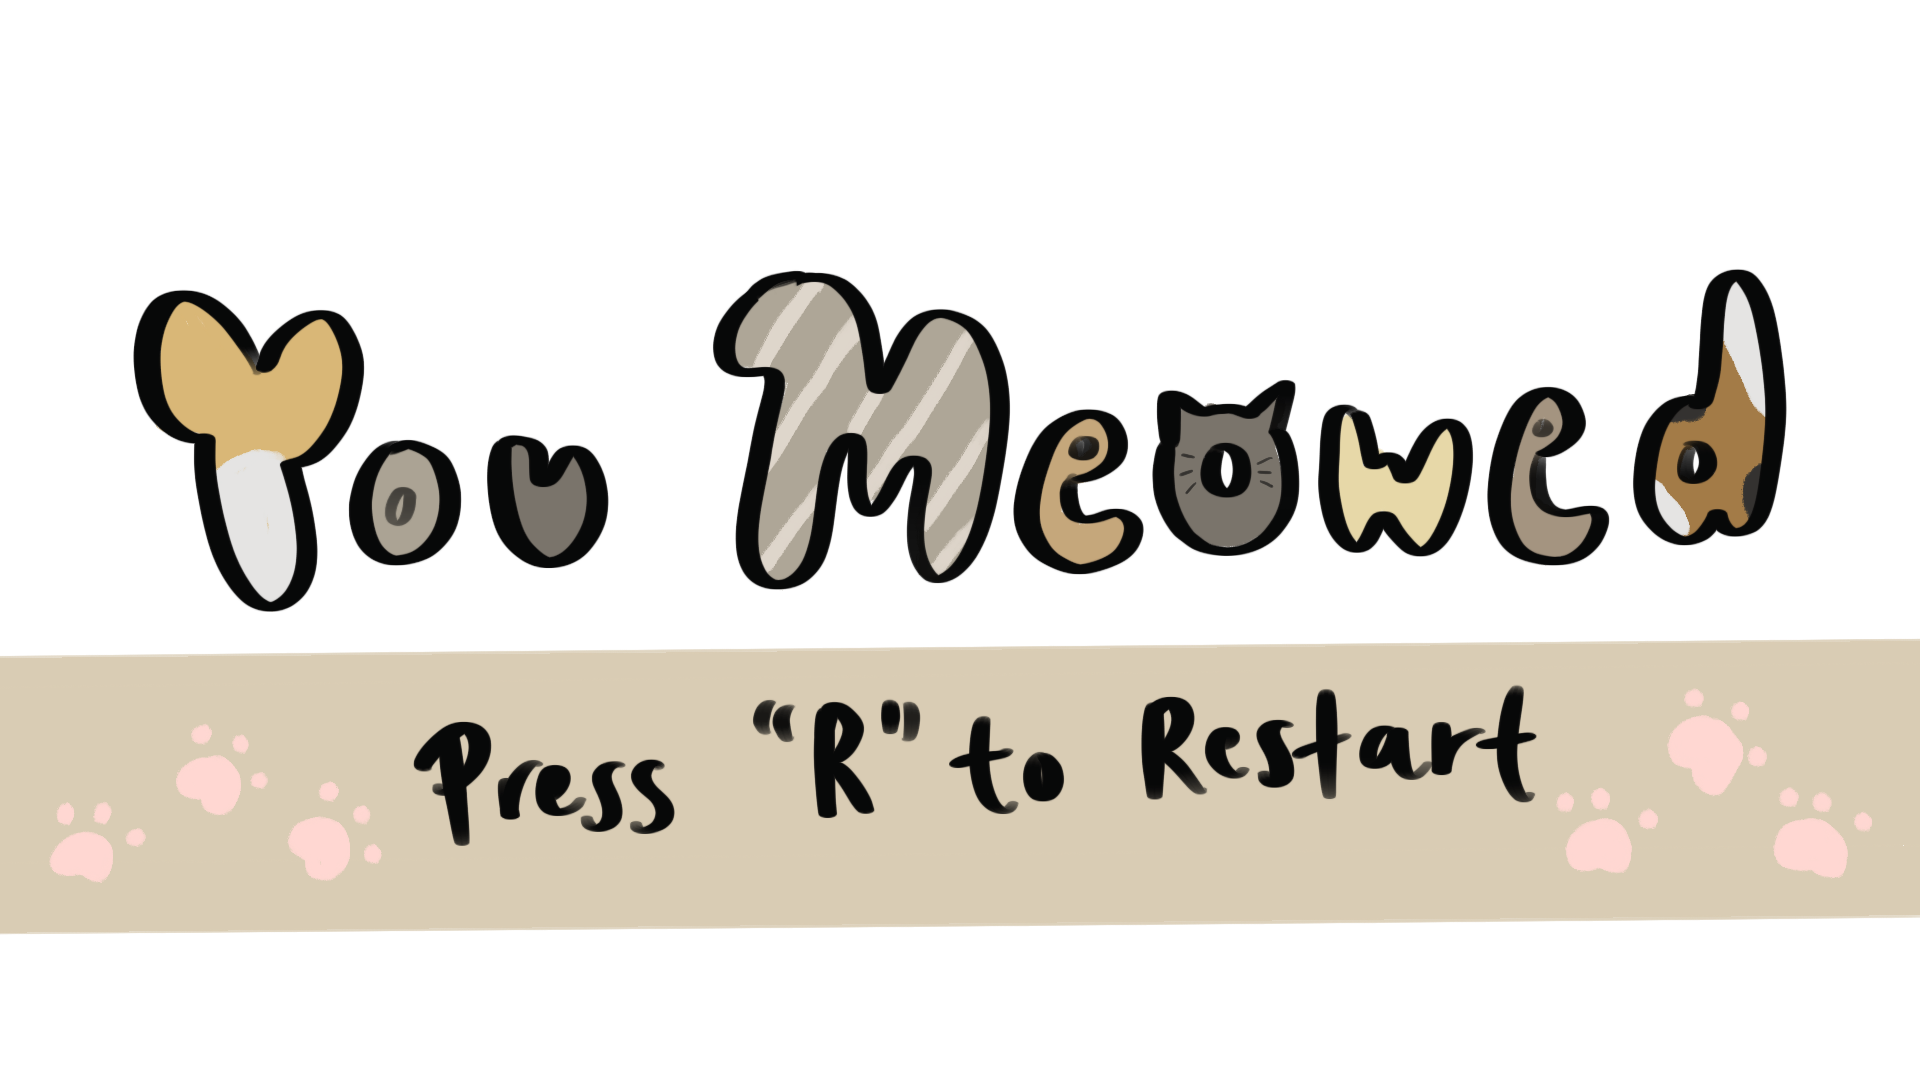 You Meowed
Press “R" to Restart